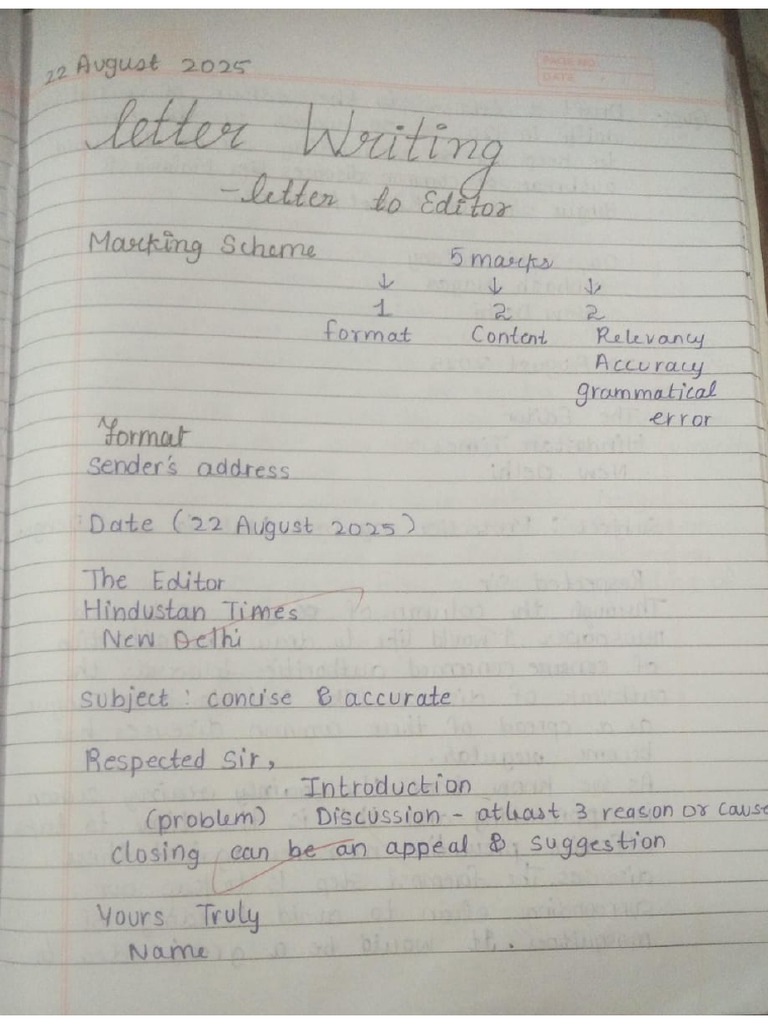 PAGE NO.
DATE
22 August 2025
letter Writing
- letter to Editor
Marking Scheme 5 marks
↓ ↓ ↓
1 2 2
format Content Relevancy
Accuracy
grammatical
error
Format
Sender's address
Date (22 August 2025)
The Editor
Hindustan Times
New Delhi
subject : concise & accurate
Respected Sir,
Introduction
(problem) Discussion - atleast 3 reason or cause
closing can be an appeal & suggestion
Yours Truly
Name